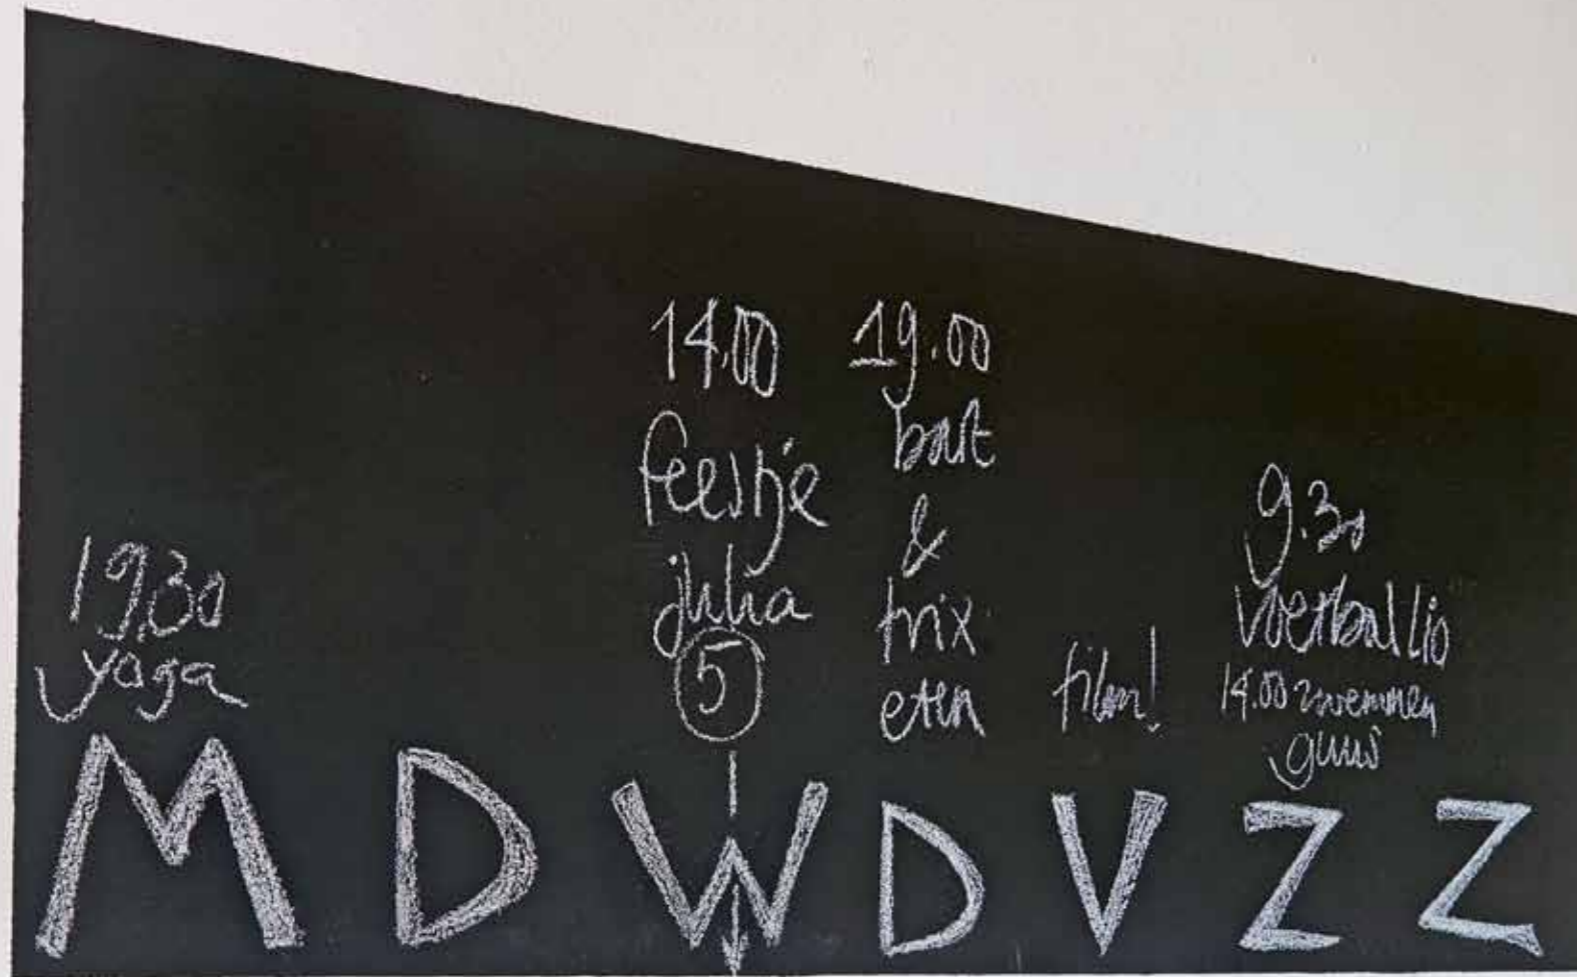 19.30
yoga
14.00
feestje
julia
5
19.00
bart
&
trix
eten
film!
9.30
voetbal lio
14.00 zwemmen
guus
M D W D V Z Z